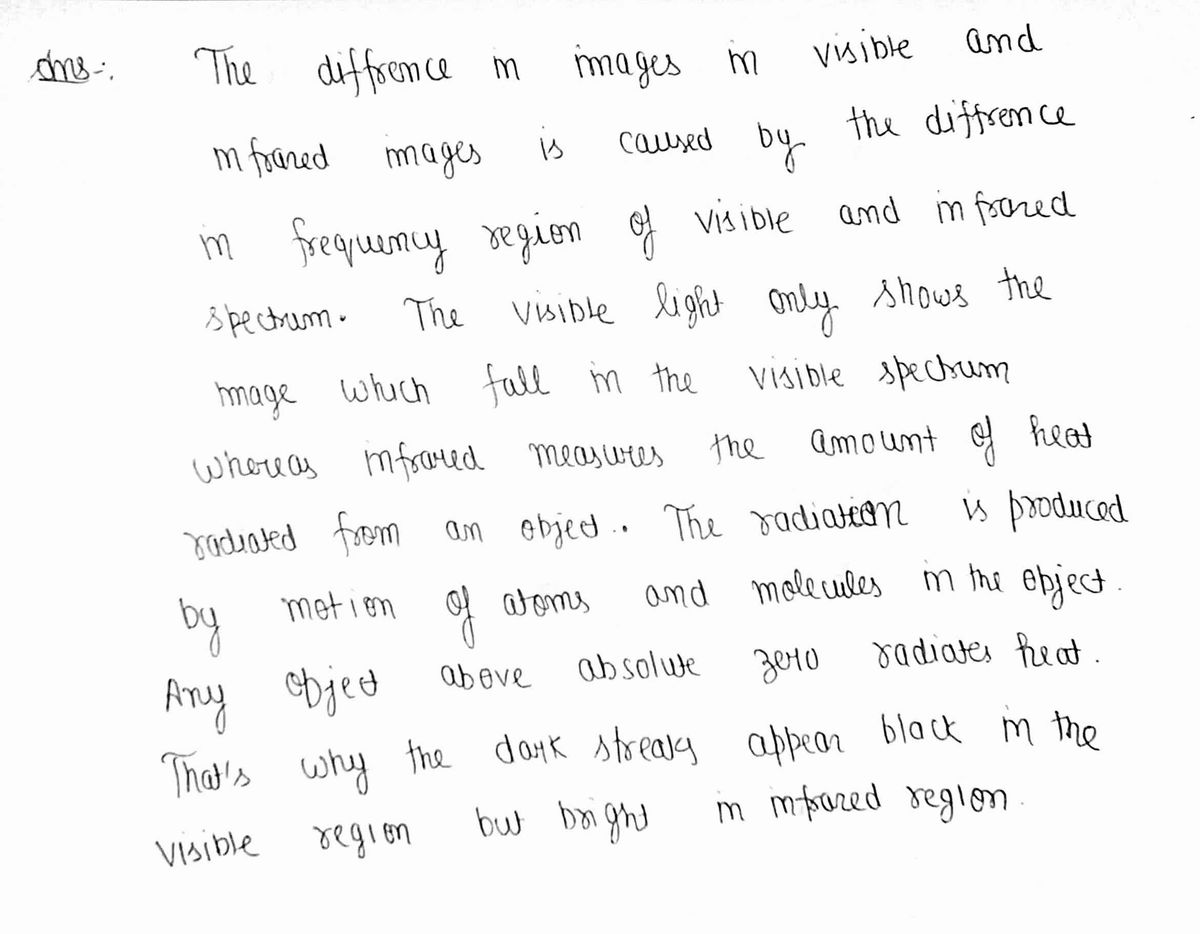 Ans-:  The diffrence in images in visible and
infrared images is caused by the diffrence
in frequency region of visible and infrared
spectrum. The visible light only shows the
image which fall in the visible spectrum
whereas infrared measures the amount of heat
radiated from an object.. The radiation is produced
by motion of atoms and molecules in the object.
Any object above absolute zero radiates heat.
That's why the dark streaks appear black in the
visible region but bright in infrared region.